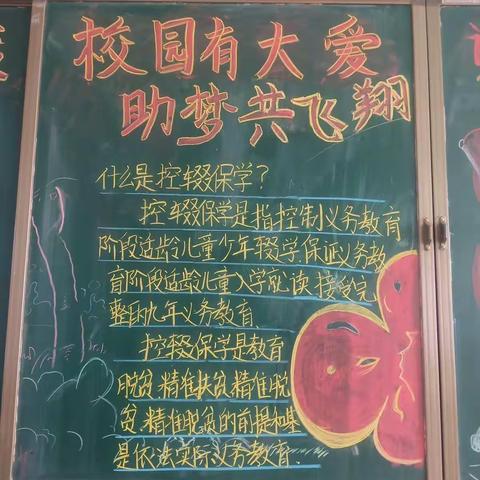 校园有大爱
助梦共飞翔
什么是控辍保学？
控辍保学是指控制义务教育
阶段适龄儿童少年辍学,保证义务教
育阶段适龄儿童入学就读,接受完
整的九年义务教育
控辍保学是教育
脱贫.精准扶贫.精准脱
贫.精准脱贫的前提和基
是依法实际义务教育.